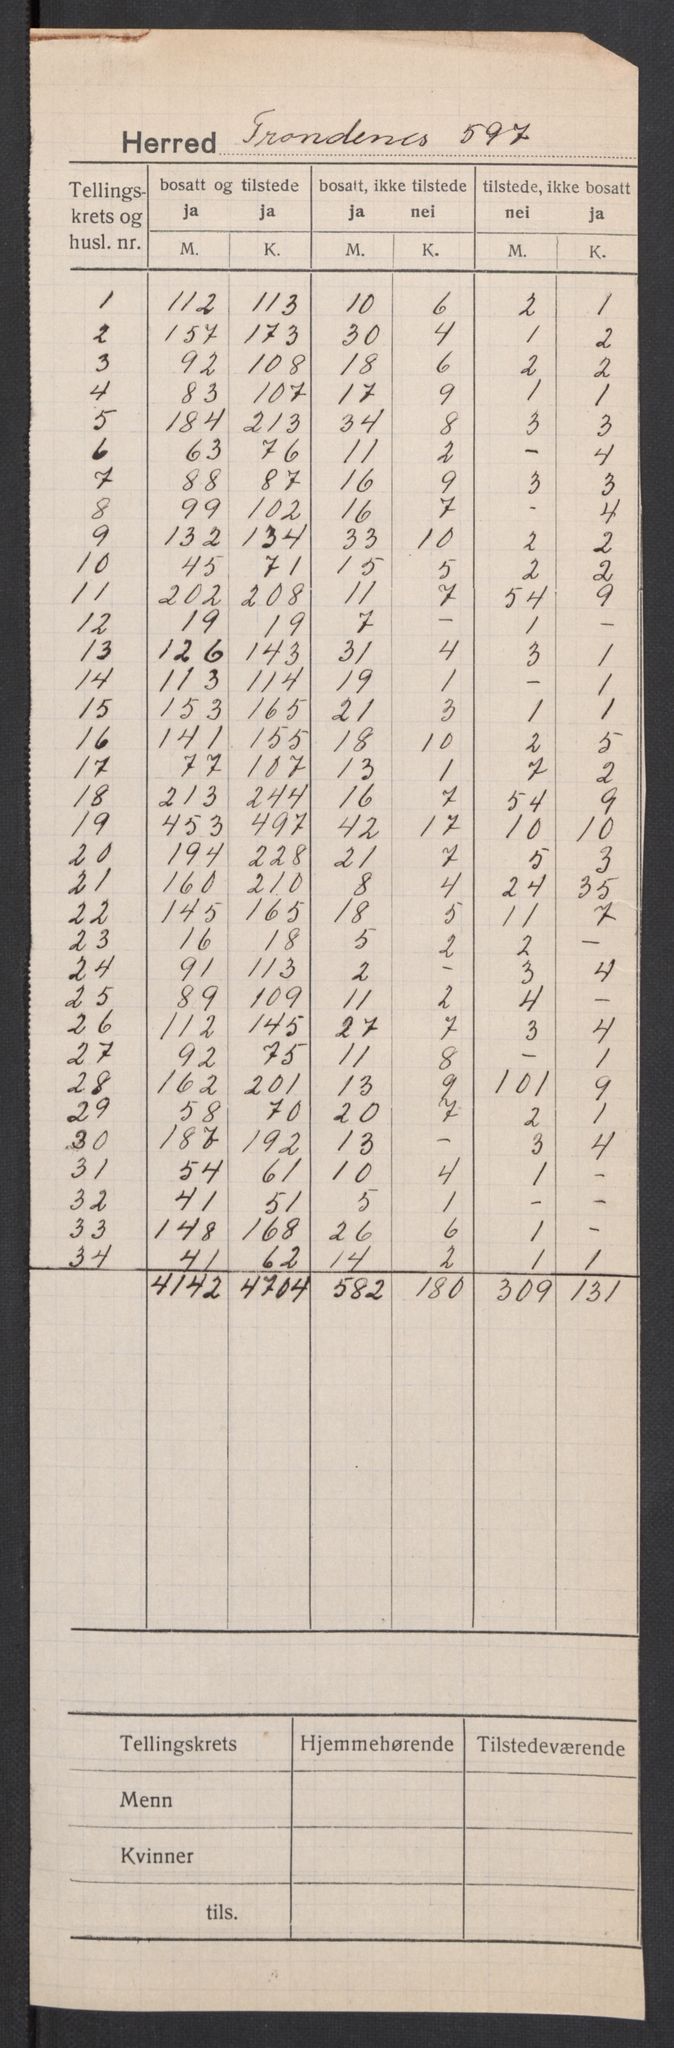 Herred Trondenes 597
Tellings- bosatt og tilstede bosatt, ikke tilstede tilstede, ikke bosatt
krets og ja ja ja nei nei ja
husl. nr. M. K. M. K. M. K.
1 112 113 10 6 2 1
2 157 173 30 4 1 2
3 92 108 18 6 2 2
4 83 107 17 9 1 1
5 184 213 34 8 3 3
6 63 76 11 2 - 4
7 88 87 16 9 3 3
8 99 102 16 7 - 4
9 132 134 33 10 2 2
10 45 71 15 5 2 2
11 202 208 11 7 54 9
12 19 19 7 - 1 -
13 126 143 31 4 3 1
14 113 114 19 1 - 1
15 153 165 21 3 1 1
16 141 155 18 10 2 5
17 77 107 13 1 7 2
18 213 244 16 7 54 9
19 453 497 42 17 10 10
20 194 228 21 7 5 3
21 160 210 8 4 24 35
22 145 165 18 5 11 7
23 16 18 5 2 2 -
24 91 113 2 - 3 4
25 89 109 11 2 4 -
26 112 145 27 7 3 4
27 92 75 11 8 - 1
28 162 201 13 9 101 9
29 58 70 20 7 2 1
30 187 192 13 - 3 4
31 54 61 10 4 1 -
32 41 51 5 1 - -
33 148 168 26 6 1 -
34 41 62 14 2 1 1
4142 4704 582 180 309 131
Tellingskrets Hjemmehørende Tilstedeværende
Menn
Kvinner
tils.